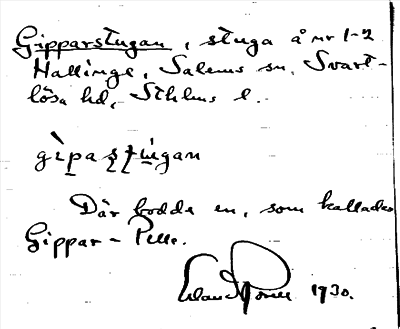 Gipparstugan, stuga å nr 1-2
Hallinge, Salems sn, Svart-
lösa hd, Sthlms l.
gìpa ștu̠gan
Där bodde en, som kallades
Gippar-Pelle.
1930.